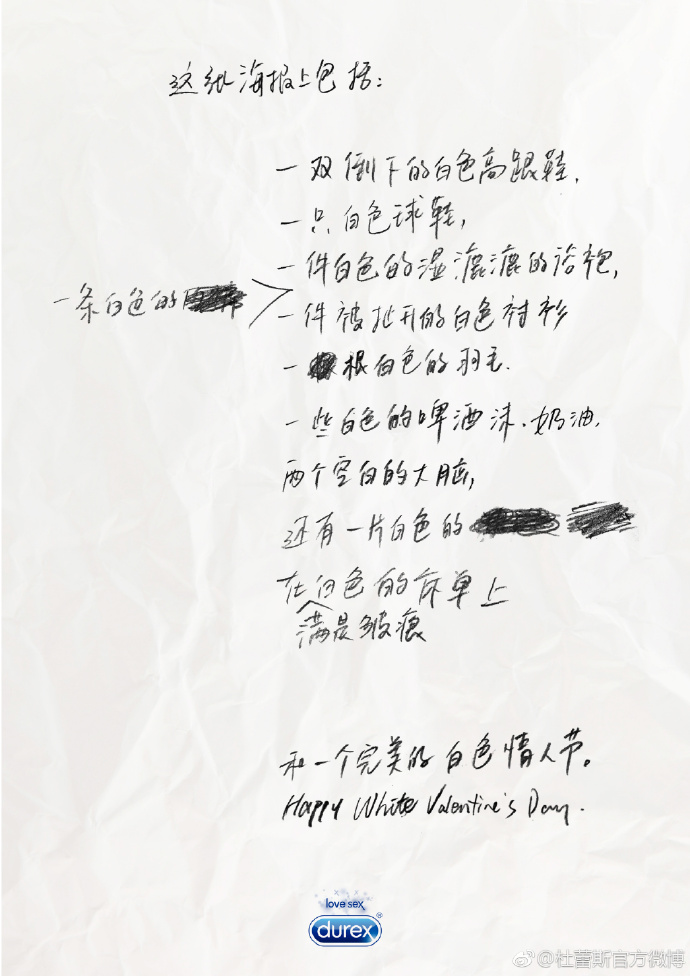 这纸海报上包括：
一双倒下的白色高跟鞋，
一只白色球鞋，
一件白色的湿漉漉的浴袍，
一条白色的
一件被扯开的白色衬衫
一根白色的羽毛.
一些白色的啤酒沫、奶油，
两个空白的大脑，
还有一片白色的
在白色的床单上
满是皱痕
和一个完美的白色情人节。
Happy White Valentine's Day.
love sex
durex®
@杜蕾斯官方微博